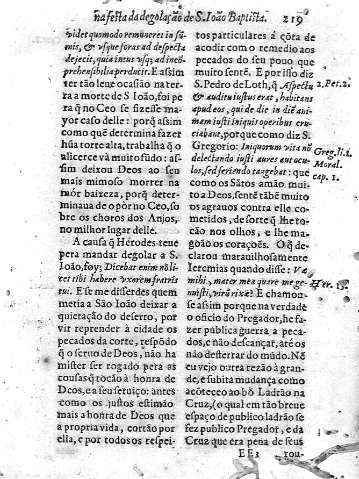 na festa da degolação de S. Ioão Baptista. 219
videt quomodo remuneret in sũ-
mis, & vsque foras ad despecta
dejecit, quia intus vsq; ad incõ-
prehensibilia perducit. E assim
ter tão leue ocasião na ter-
ra a morte de S. Ioão, foi pe
ra q̃ no Ceo se fizesse ma-
yor caso delle: porq̃ assim
como quẽ determina fazer
hũa torre alta, trabalha q̃ o
alicerce và muito fũdo: as-
sim deixou Deos ao seu
mais mimoso morrer na
mór baixeza, porq̃ deter-
minaua de o pòr no Ceo, so-
bre os choros dos Anjos,
no milhor lugar delle.
A causa q̃ Herodes teue
pera mandar degolar a S.
Ioão, foy; Dicebat enim nõ li-
cet tibi habere vxorem fratris
tui. E se me disserdes quem
metia a São Ioão deixar a
quietação do deserto, por
vir reprender à cidade os
pecados da corte, respõdo
q̃ o seruo de Deos, não ha
mister ser rogado pera as
cousas q̃ tocão à honra de
Deos, e a seu seruiço: antes
como os justos estimão
mais a honra de Deos que
a propria vida, cortão por
ella, e por todos os respei-
tos particulares à cõta de
acodir com o remedio aos
pecados do seu pouo que
muito sentẽ. E por isso diz
S. Pedro de Loth, q̃ Aspectu
& auditu iustus erat, habitans
apud eos, qui de die in diẽ ani-
mam iusti iniquis operibus cru-
ciabant, porque como diz S.
Gregorio: Iniquorum vita nõ
delectando iusti aures aut ocu-
los, sed feriendo tangebat: que
como os Sãtos amão mui-
to a Deos, sentẽ tãbẽ muito
os agrauos contra elle co-
metidos, de sorte q̃ lhe to-
cão nos olhos, e lhe ma-
goão os corações. O q̃ de-
clarou marauilhosamente
Ieremias quando disse: Væ
mihi, mater mea quare me ge-
nuisti, virũ rixæ? E chamou-
se assim porque na verdade
o officio do Pregador, he fa-
zer publica guerra a peca-
dos, e não descançar, atè os
não desterrar do mũdo. Nẽ
eu vejo outra rezão à gran-
de, e subita mudança como
acõteceo ao bõ Ladrão na
Cruz, (o qual em tão breue
espaço de publico ladrão se
fez publico Pregador, e da
Cruz que era pena de seus
2. Pet. 2.
Greg. li. 1.
Moral.
cap. 1.
E E 2 rou-